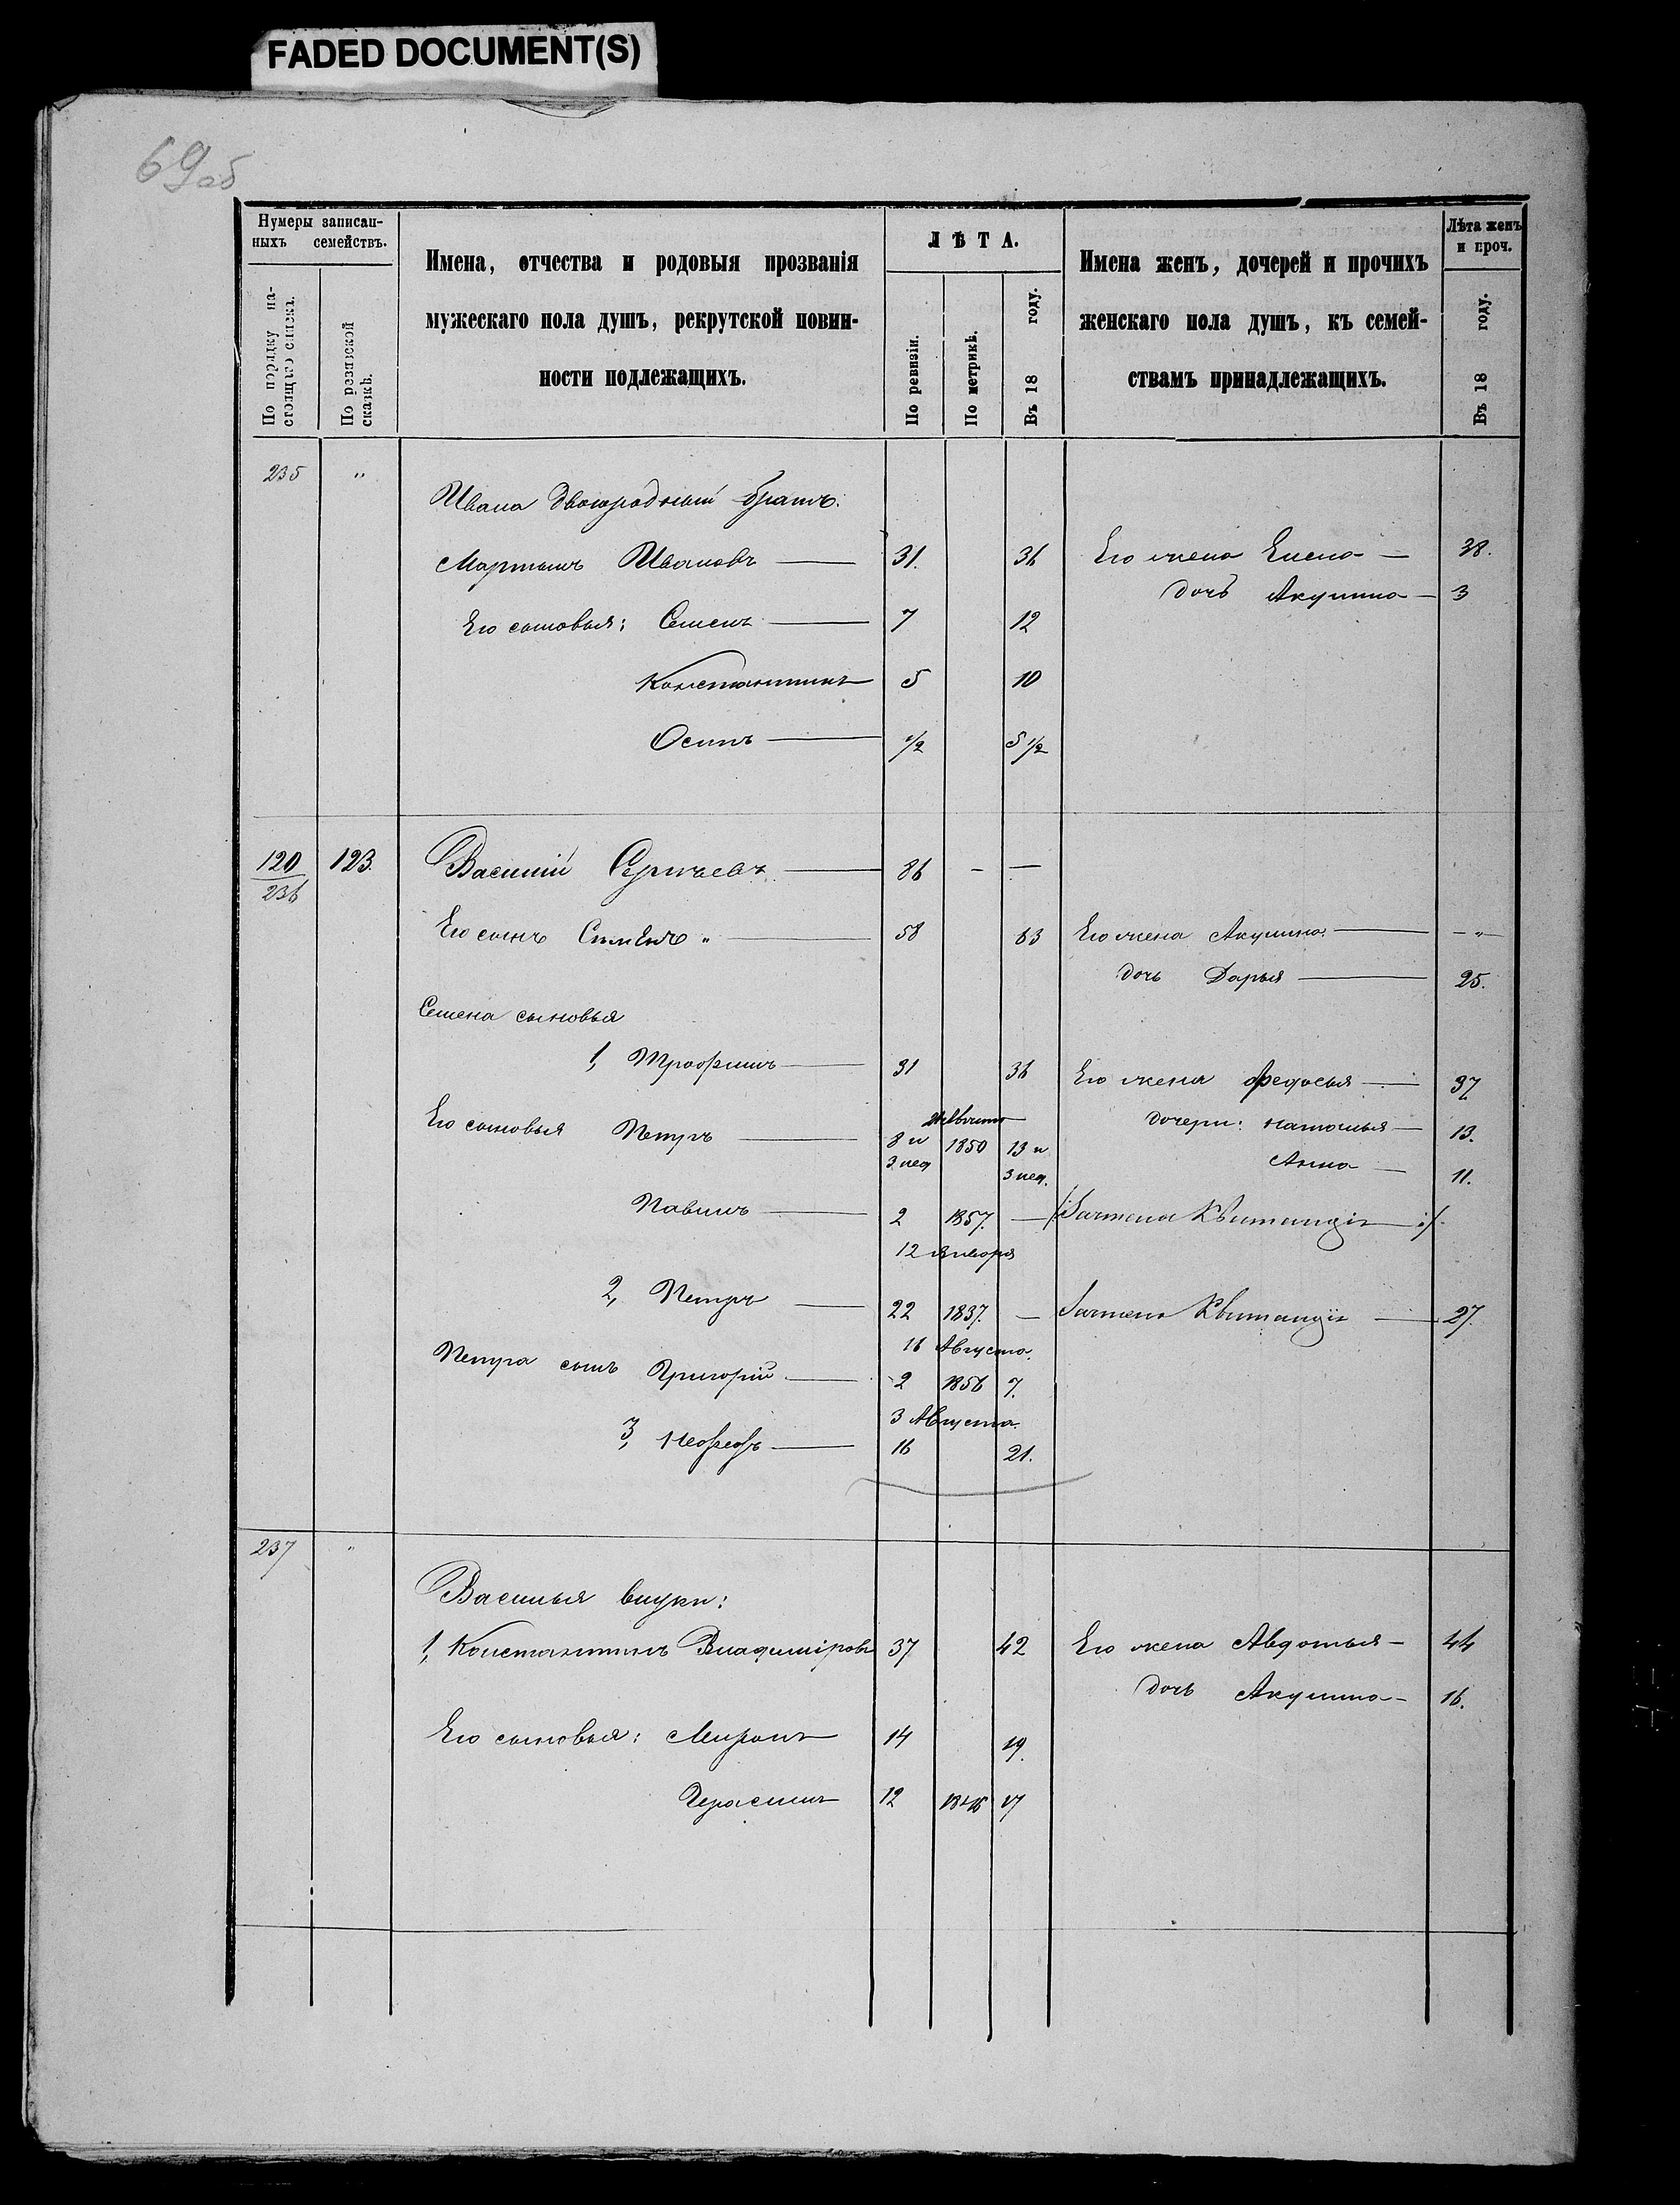 FADED DOCUMENT(S)
69 об
Нумеры записан-
ныхъ семействъ.
По порядку на-
стоящаго списка.
По ревизской
сказкѣ.
Имена, отчества и родовыя прозванія
мужескаго пола душъ, рекрутской повин-
ности подлежащихъ.
ЛѢТА.
По ревизіи.
По метрикѣ.
Въ 18 году.
Имена женъ, дочерей и прочихъ
женскаго пола душъ, къ семей-
ствамъ принадлежащихъ.
Лѣта женъ
и проч.
Въ 18 году.
235 "
Ивана двоюродный братъ:
Мартынъ Ивановъ 31. 36 Его жена Елена 38.
дочь Акулина 3
Его сыновья: Семенъ 7 12
Константинъ 5 10
Осипъ 1/2 5 1/2
120 123. Василій Сергѣевъ 86 - —
236
Его сынъ Семенъ " 58 63 Его жена Акулина - " -
дочь Дарья 25.
Семена сыновья
1, Трофимъ 31 36 Его жена Федосья 37
Его сыновья Петръ 8 и 1850 13 и дочери: Наталья 13.
3 нед 3 нед. Анна 11.
Павелъ 2 1857. —
12 Января
2, Петръ 22 1837. — 27.
16 Августа.
Петра сынъ Григорій 2 1856 7.
3 Августа.
3, 16 21.
237 "
Василья внуки:
1, Константинъ Владиміровъ 37 42 Его жена Авдотья 44
дочь Акулина 16.
Его сыновья: Миронъ 14 19.
Герасимъ 12 1846 17